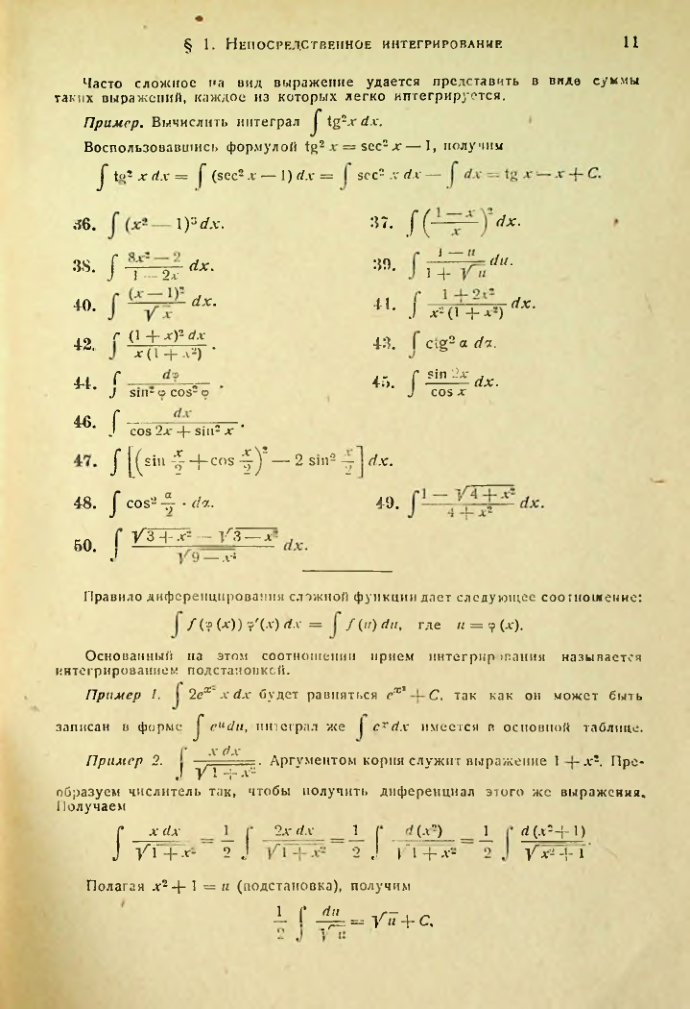 § 1. Непосредственное интегрирование 11
Часто сложное на вид выражение удается представить в виде суммы
таких выражений, каждое из которых легко интегрируется.
Пример. Вычислить интеграл ∫ tg² x dx.
Воспользовавшись формулой tg² x = sec² x — 1, получим
∫ tg² x dx = ∫ (sec² x — 1) dx = ∫ sec² x dx — ∫ dx = tg x — x + C.
36. ∫ (x² — 1)³ dx. 37. ∫ ((1 — x)/x)² dx.
38. ∫ (8x³ — 2)/(1 — 2x) dx. 39. ∫ (1 — u)/(1 + √u) du.
40. ∫ (x — 1)²/√x dx. 41. ∫ (1 + 2x²)/(x² (1 + x²)) dx.
42. ∫ (1 + x)² dx/(x (1 + x²)). 43. ∫ ctg² α dα.
44. ∫ dφ/(sin² φ cos² φ). 45. ∫ sin 2x/cos x dx.
46. ∫ dx/(cos 2x + sin² x).
47. ∫ [(sin x/2 + cos x/2)² — 2 sin² x/2] dx.
48. ∫ cos² α/2 · dα. 49. ∫ (1 — √(4 + x²))/(4 + x²) dx.
50. ∫ (√(3 + x²) — √(3 — x²))/√(9 — x⁴) dx.
Правило диференцирования сложной функции дает следующее соотношение:
∫ f (φ (x)) φ′(x) dx = ∫ f (u) du, где u = φ (x).
Основанный на этом соотношении прием интегрирования называется
интегрированием подстановкой.
Пример 1. ∫ 2e^{x²} x dx будет равняться e^{x²} + C, так как он может быть
записан в форме ∫ eᵘdu, интеграл же ∫ eˣdx имеется в основной таблице.
Пример 2. ∫ x dx/√(1 + x²). Аргументом корня служит выражение 1 + x². Пре-
образуем числитель так, чтобы получить диференциал этого же выражения.
Получаем
∫ x dx/√(1 + x²) = 1/2 ∫ 2x dx/√(1 + x²) = 1/2 ∫ d (x²)/√(1 + x²) = 1/2 ∫ d (x² + 1)/√(x² + 1).
Полагая x² + 1 = u (подстановка), получим
1/2 ∫ du/√u = √u + C,